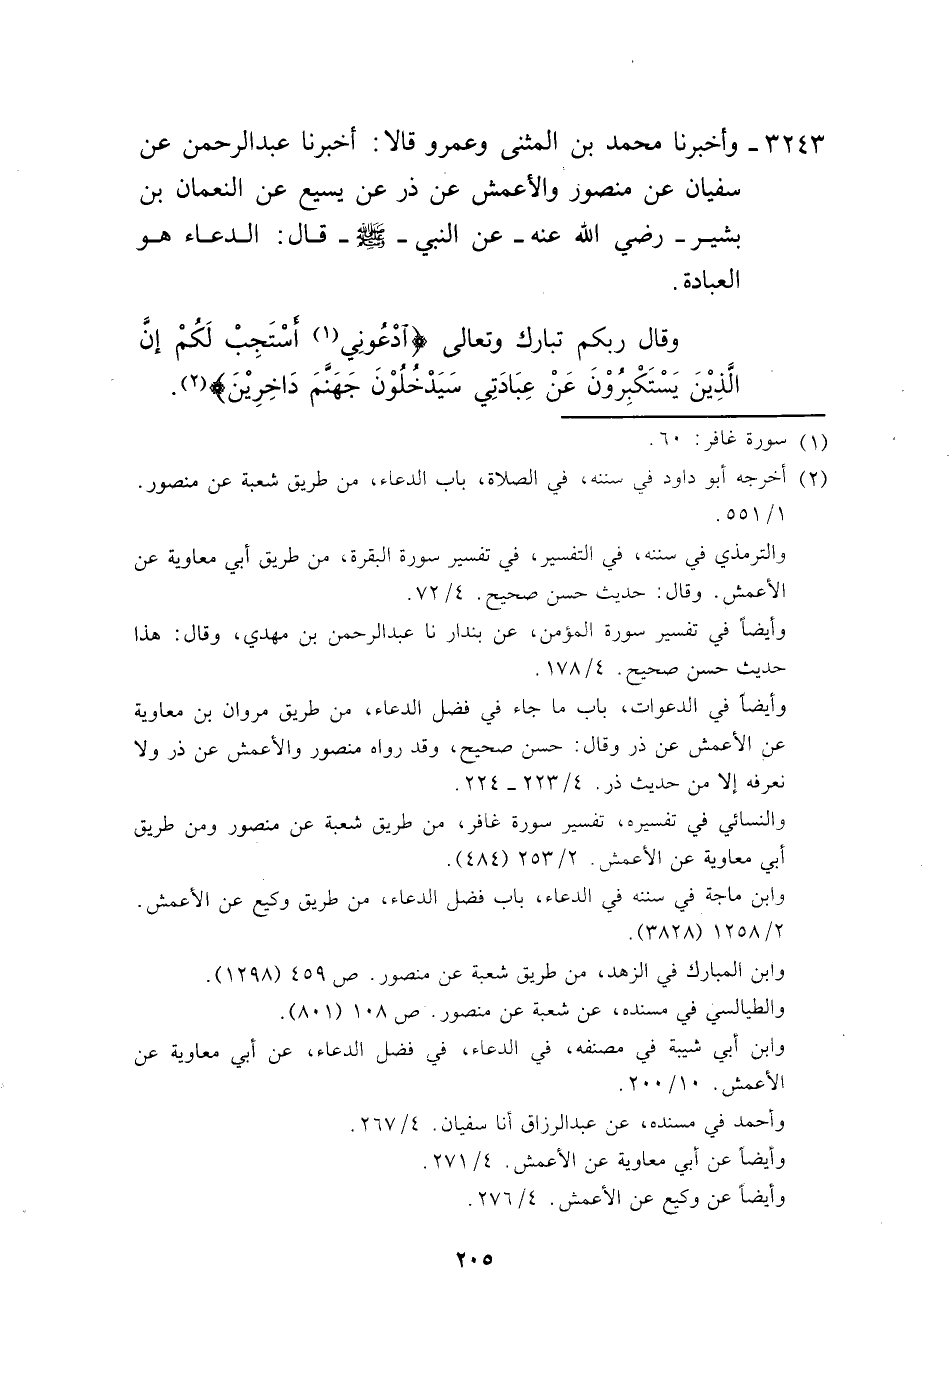 ٣٢٤٣ـ وأخبرنا محمد بن المثنى وعمرو قالا: أخبرنا عبدالرحمن عن
سفيان عن منصور والأعمش عن ذر عن يسيع عن النعمان بن
بشيـر ـ رضي الله عنه ـ عن النبي ـ ﷺ ـ قـال: الـدعـاء هـو
العبادة.
وقال ربكم تبارك وتعالى ﴿ٱدْعُونِي(١) أَسْتَجِبْ لَكُمْ إِنَّ
الَّذِيْنَ يَسْتَكْبِرُوْنَ عَنْ عِبَادَتِي سَيَدْخُلُوْنَ جَهَنَّمَ دَاخِرِيْنَ﴾(٢).
(١) سورة غافر: ٦٠.
(٢) أخرجه أبو داود في سننه، في الصلاة، باب الدعاء، من طريق شعبة عن منصور.
٥٥١/١.
والترمذي في سننه، في التفسير، في تفسير سورة البقرة، من طريق أبي معاوية عن
الأعمش. وقال: حديث حسن صحيح. ٧٢/٤.
وأيضاً في تفسير سورة المؤمن، عن بندار نا عبدالرحمن بن مهدي، وقال: هذا
حديث حسن صحيح. ١٧٨/٤.
وأيضاً في الدعوات، باب ما جاء في فضل الدعاء، من طريق مروان بن معاوية
عن الأعمش عن ذر وقال: حسن صحيح، وقد رواه منصور والأعمش عن ذر ولا
نعرفه إلا من حديث ذر. ٢٢٣/٤ ـ ٢٢٤.
والنسائي في تفسيره، تفسير سورة غافر، من طريق شعبة عن منصور ومن طريق
أبي معاوية عن الأعمش. ٢٥٣/٢ (٤٨٤).
وابن ماجة في سننه في الدعاء، باب فضل الدعاء، من طريق وكيع عن الأعمش.
١٢٥٨/٢ (٣٨٢٨).
وابن المبارك في الزهد، من طريق شعبة عن منصور. ص ٤٥٩ (١٢٩٨).
والطيالسي في مسنده، عن شعبة عن منصور. ص ١٠٨ (٨٠١).
وابن أبي شيبة في مصنفه، في الدعاء، في فضل الدعاء، عن أبي معاوية عن
الأعمش. ٢٠٠/١٠.
وأحمد في مسنده، عن عبدالرزاق أنا سفيان. ٢٦٧/٤.
وأيضاً عن أبي معاوية عن الأعمش. ٢٧١/٤.
وأيضاً عن وكيع عن الأعمش. ٢٧٦/٤.
٢٠٥